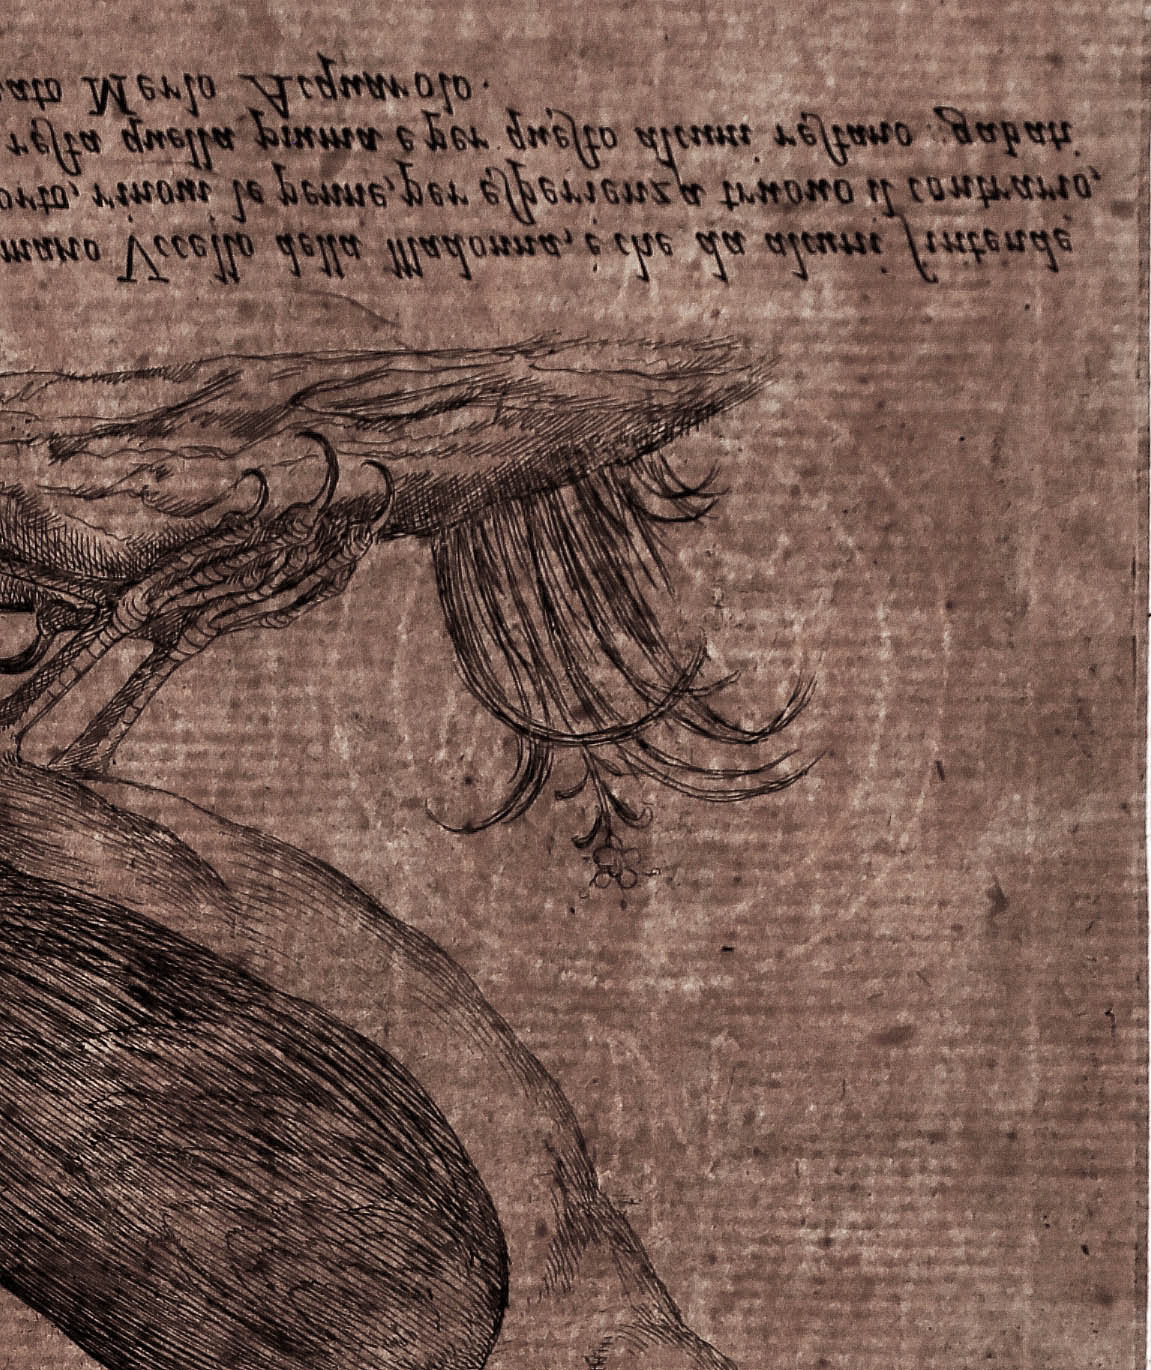 mano Vccello della Madonna, è che da alcuni ſintende
orto, rinoui le penne, per eſperienza truouo il contrario,
reſta quella piuma e per queſto alcuni reſtano gabati
ato Merlo Acquarolo.